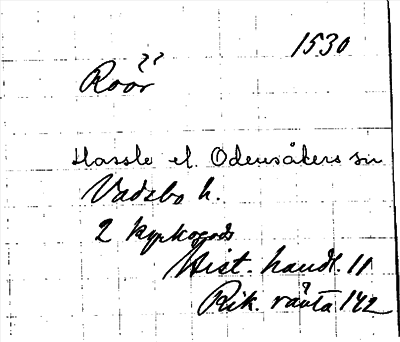 1530
??
Roor
Hassle el. Odensåkers sn
Vadsbo h.
2 kyrkogods
Hist. handl. 11
Rik. ränta 142